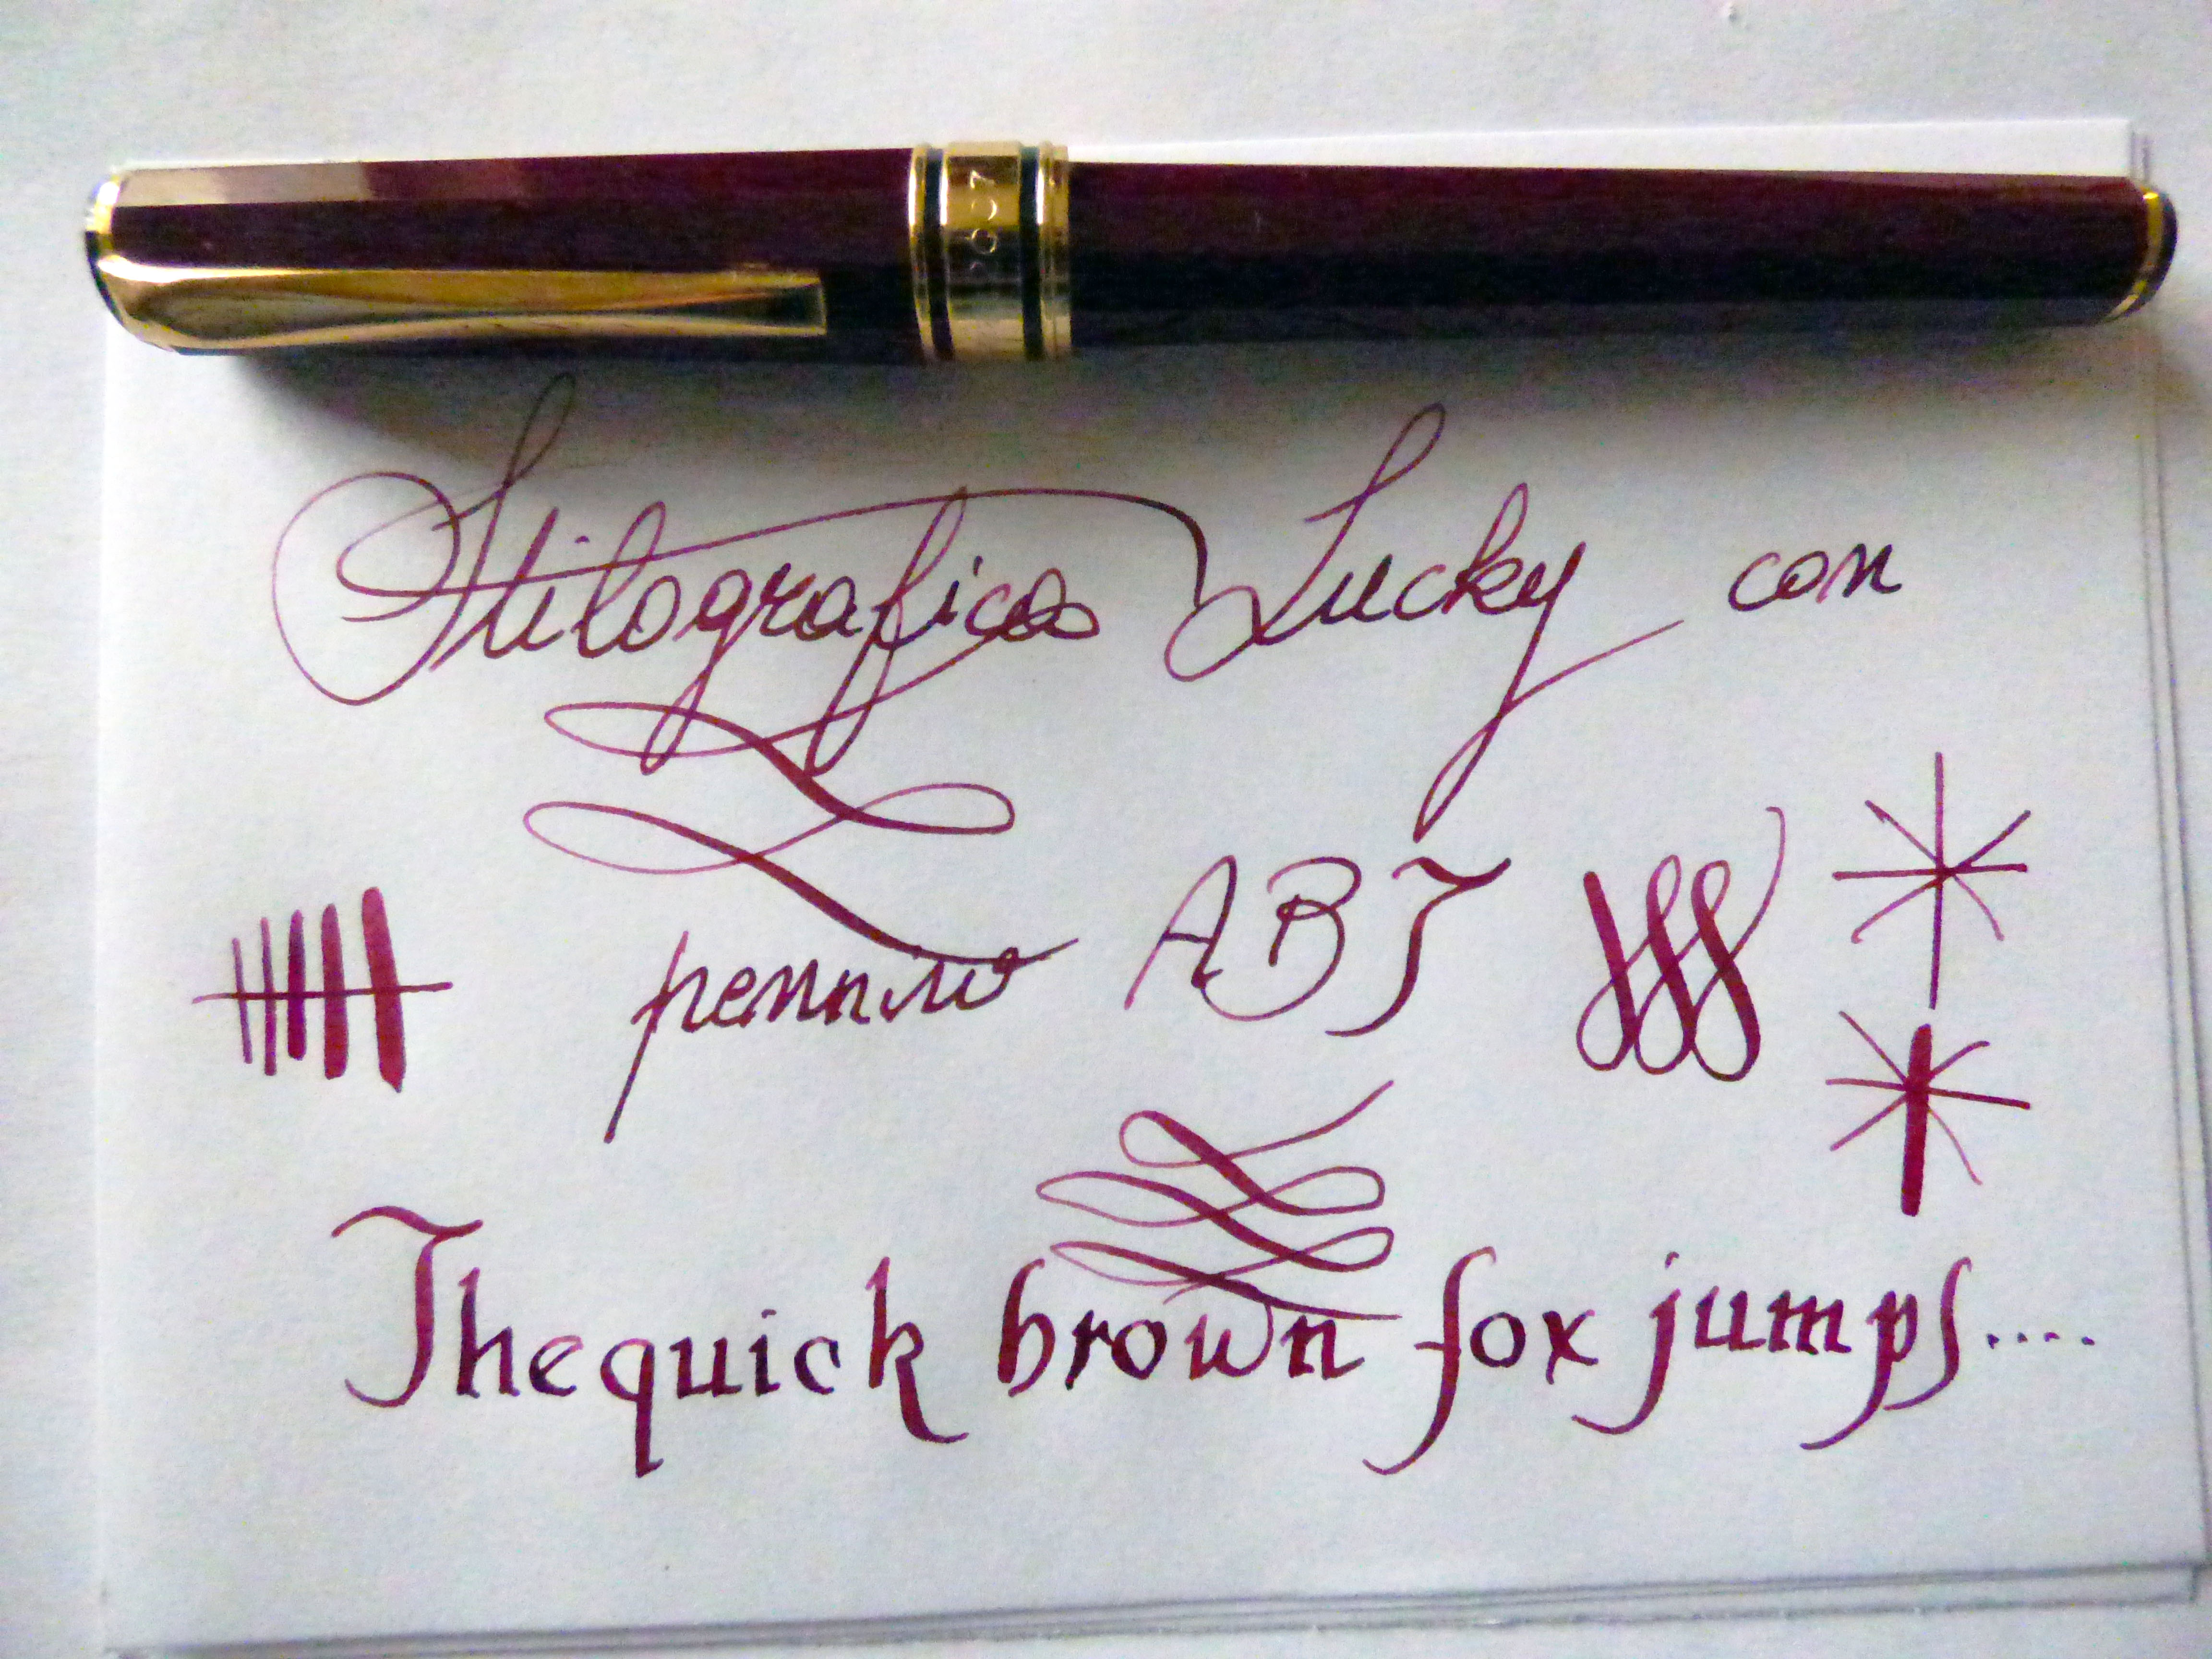 Stilografica Lucky con
pennino ABJ
The quick brown fox jumps....